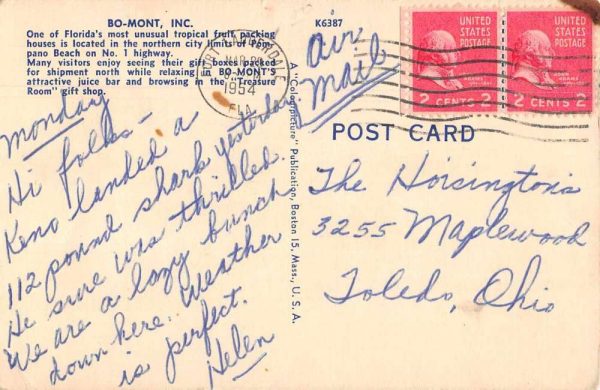 BO-MONT, INC.
One of Florida's most unusual tropical fruit packing
houses is located in the northern city limits of Pom-
pano Beach on No. 1 highway.
Many visitors enjoy seeing their gift boxes packed
for shipment north while relaxing in BO-MONT'S
attractive juice bar and browsing in the "Treasure
Room" gift shop.
Monday
Hi folks—
Keno landed a
112 pound shark yesterday.
He sure was thrilled.
We are a lazy bunch
down here. Weather
is perfect.
Helen
A "Colourpicture" Publication, Boston 15, Mass., U. S. A.
K6387
Air
Mail
FORT LAUDERDALE
MAR
1954
FLA.
UNITED
STATES
POSTAGE
JOHN ADAMS
2 CENTS 2
UNITED
STATES
POSTAGE
JOHN ADAMS
2 CENTS 2
POST CARD
The Hoisington's
3255 Maplewood
Toledo, Ohio